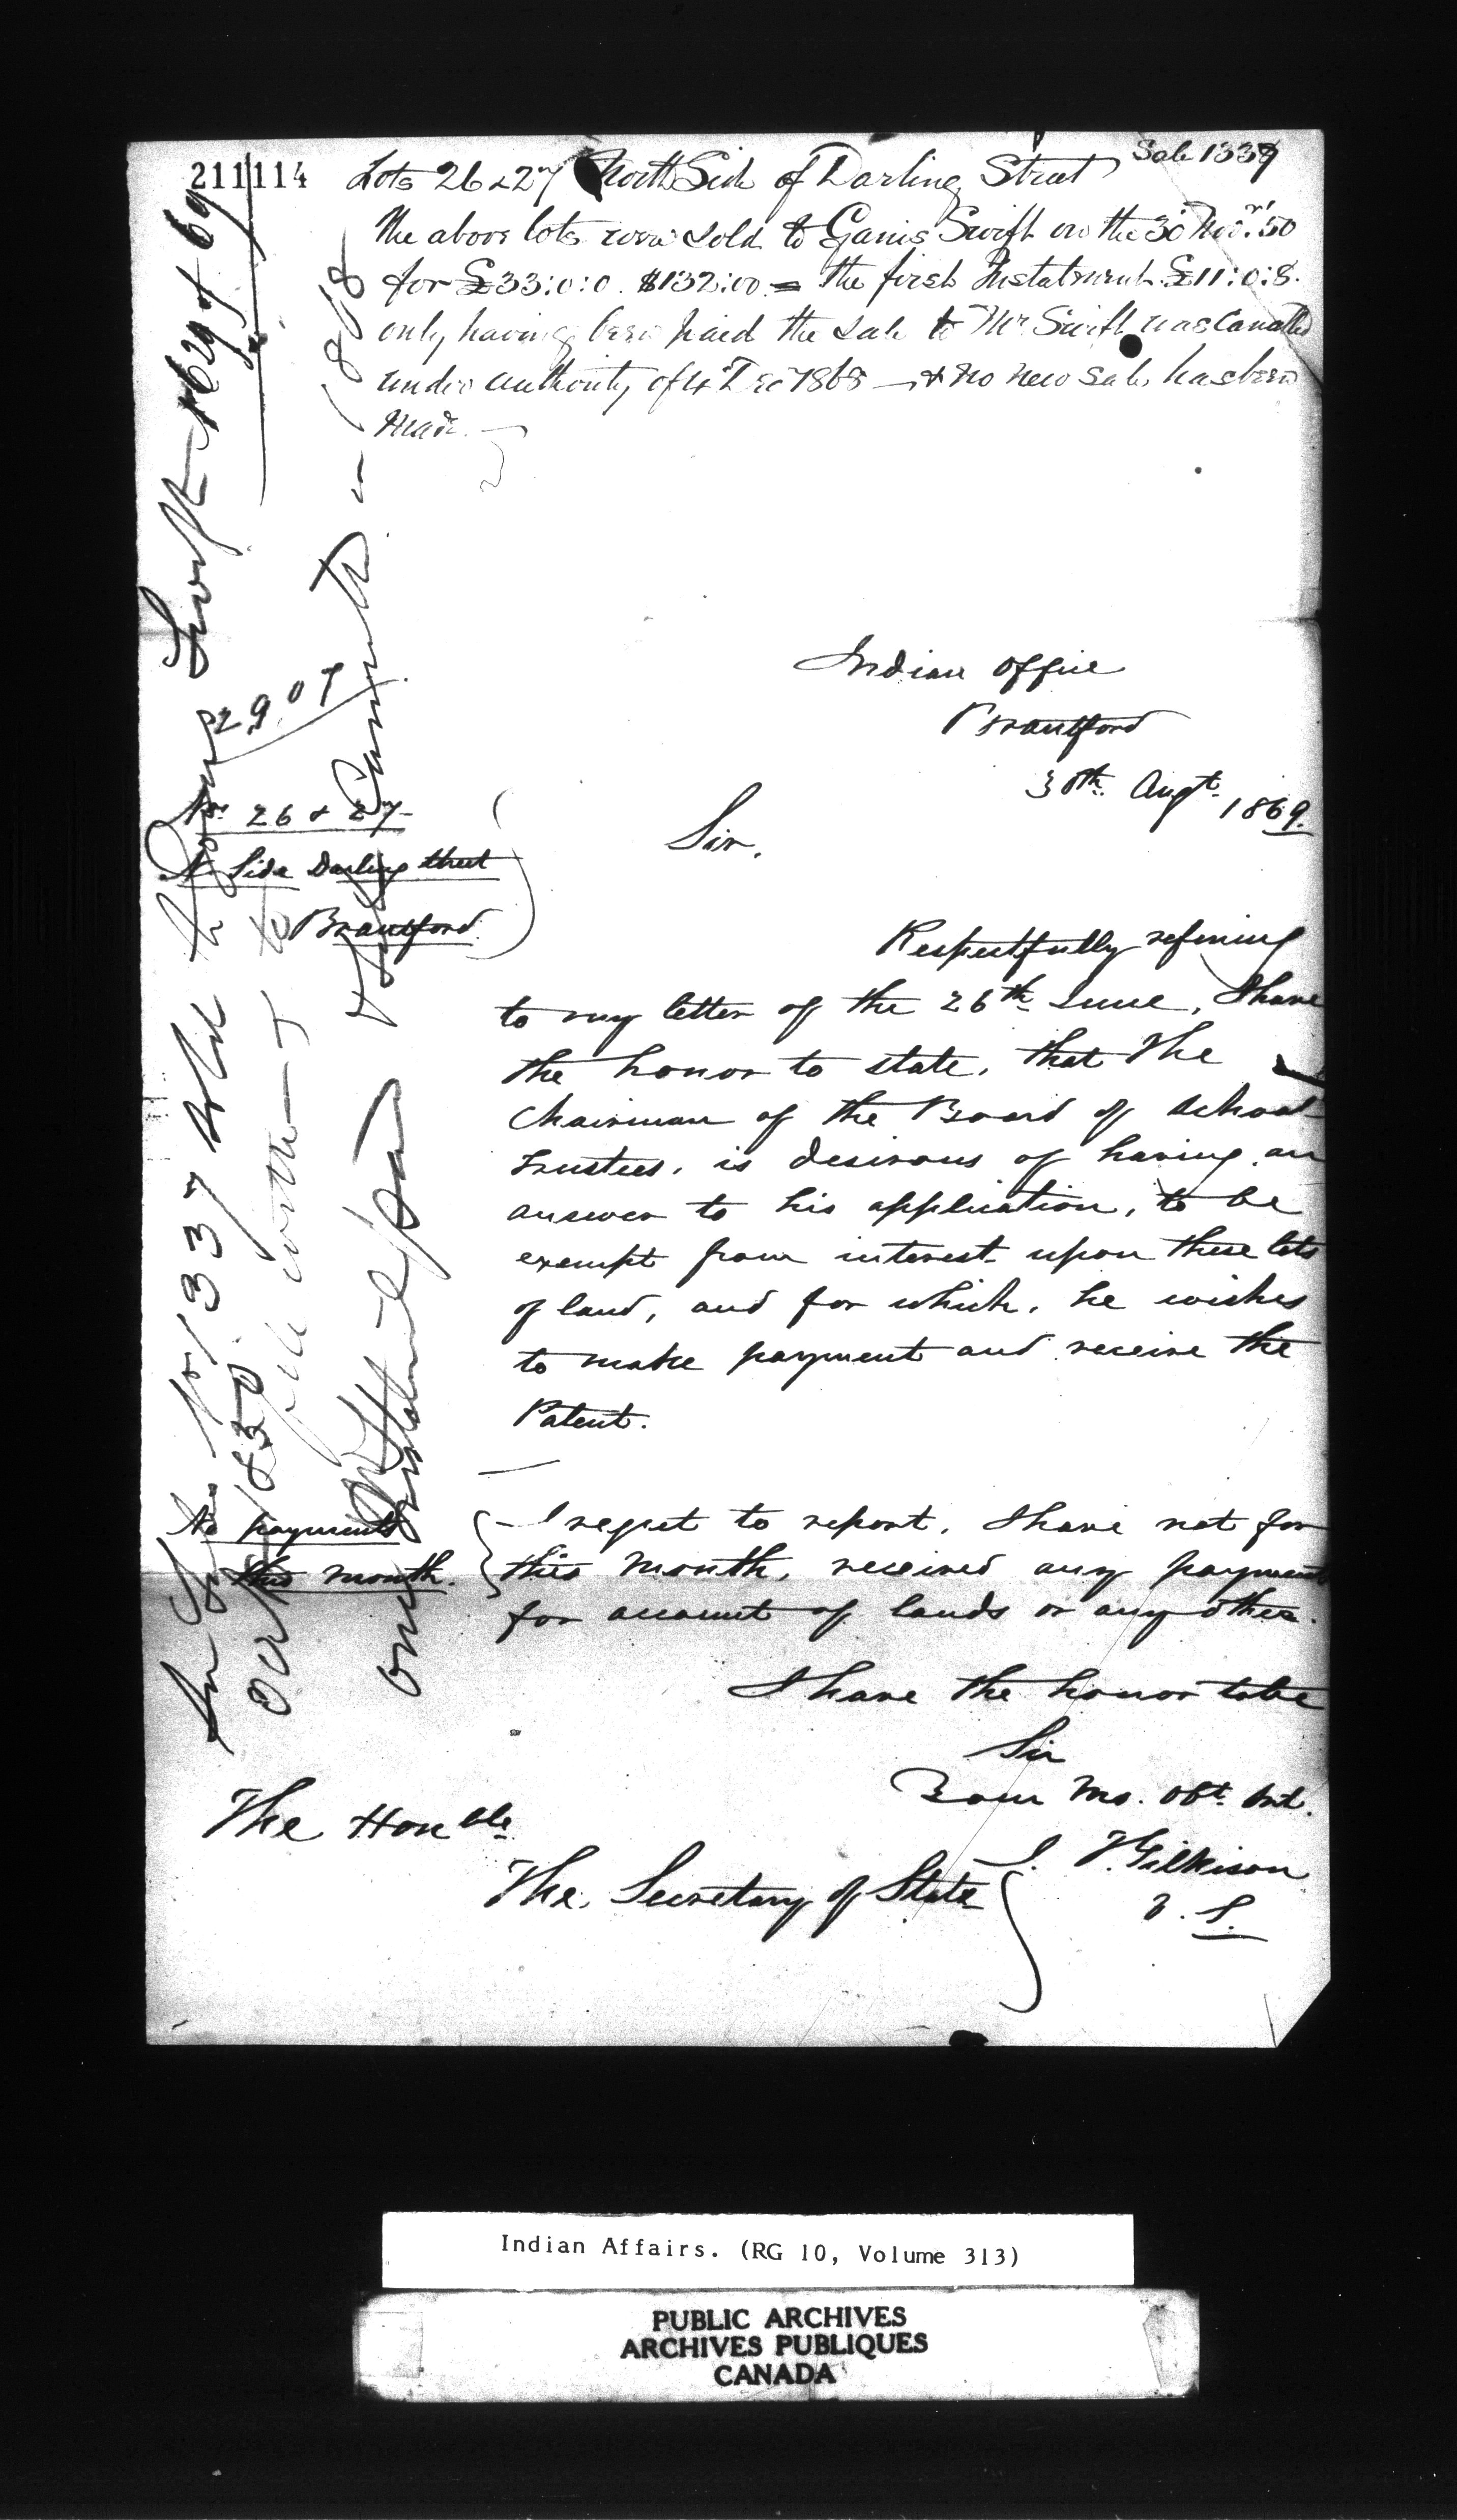 211114
Lots 26 & 27 North Side of Darling Street Sale 1337
The above lots were sold to James Swift on the 30 Nov.r '50
for £33:0:0. $132:00 = the first Instalment £11:0:8.
only having been paid the sale to Mr Swift was Cancelled
under authority of 4 Dec 1868 — & no new sale has been
Made. —
Indian Office
Brantford
30th Augt. 1869.
2907
Nos. 26 & 27
N. Side Darling Street
Brantford.
Sir,
Respectfully refering
to my letter of the 26th June, I have
the honor to state, that the
Chairman of the Board of School
Trustees, is desirous of having an
answer to his application, to be
exempt from interest upon these lots
of land, and for which, he wishes
to make payment and receive the
Patent.
No payments
this month.
I regret to report, I have not for
this month, received any payment
for account of lands or any other.
I have the honor to be
Sir
Your Mo. Obt. Svt.
J. T. Gilkison
V. S.
The Honble.
The Secretary of State
No 1337 sold to James Swift
1850
only
Instalment
Cancelled in 1868
Indian Affairs. (RG 10, Volume 313)
PUBLIC ARCHIVES
ARCHIVES PUBLIQUES
CANADA